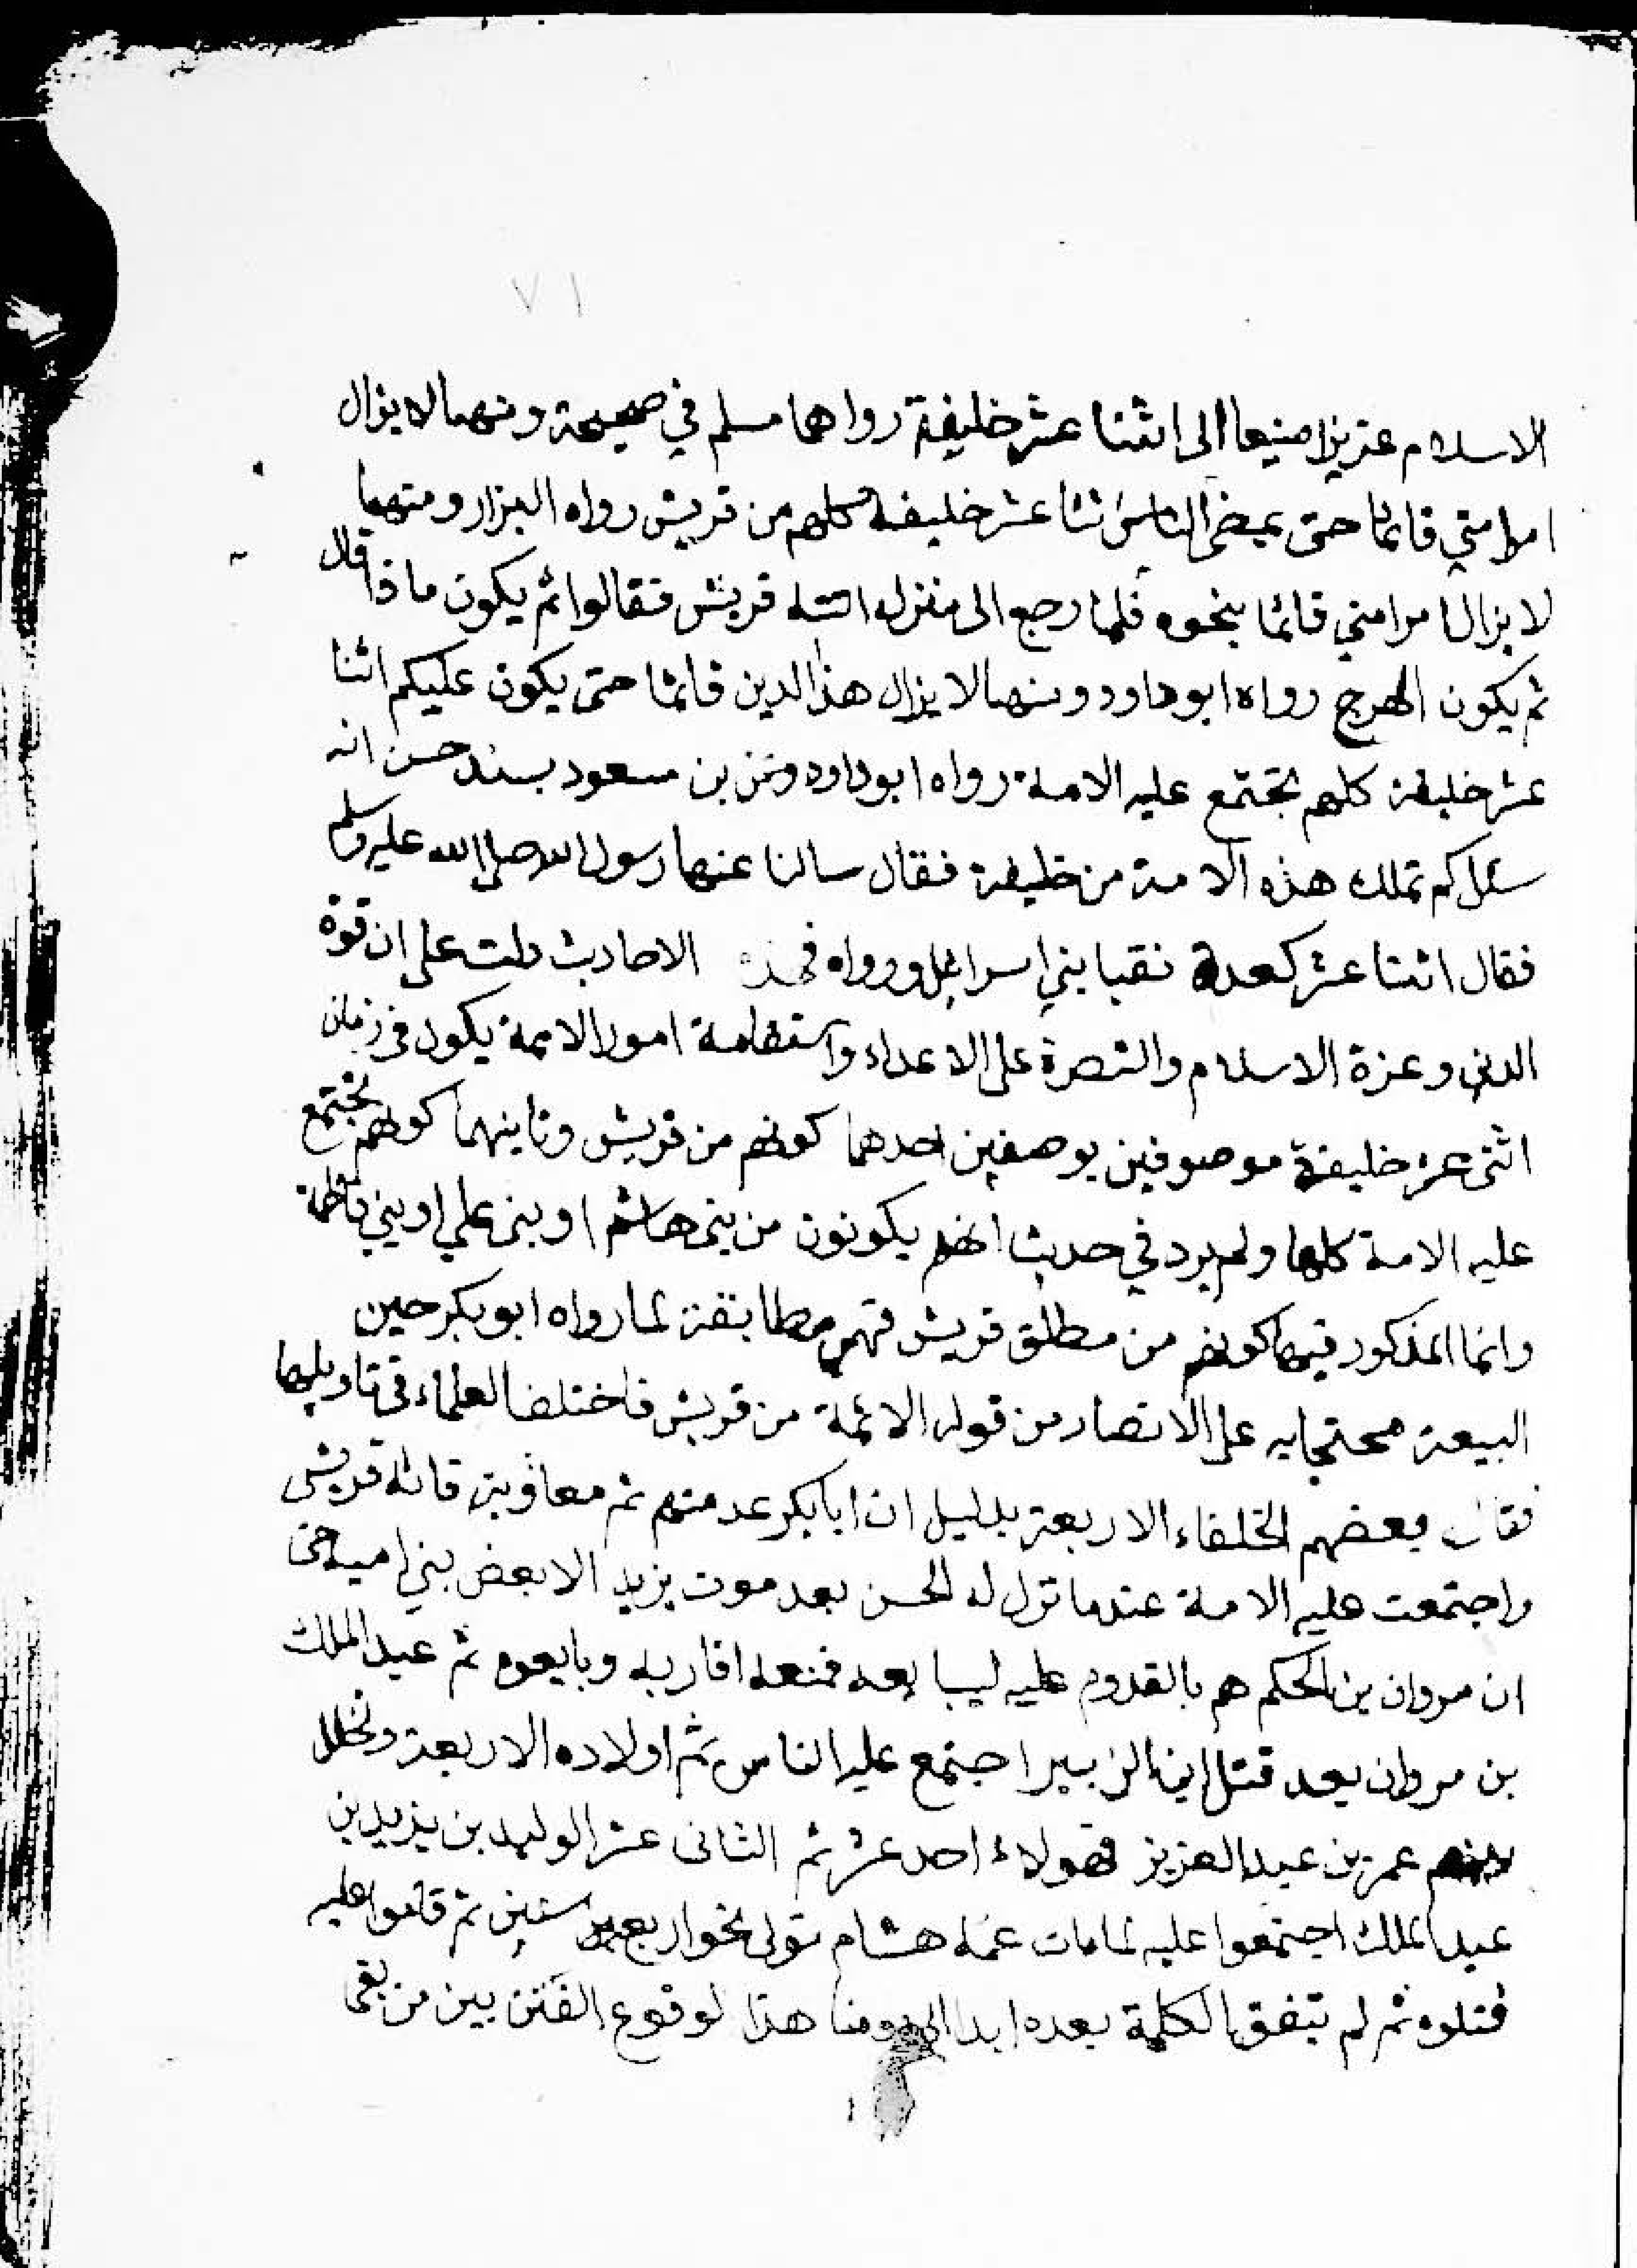 ٧١
الاسلام عزيزا منيعا الى اثنا عشر خليفة رواهما مسلم في صحيحة ومنهما لا يزال
امرامتي قائما حتى يمضى الناس اثنا عشر خليفة كلهم من قريش رواه البزار ومنهما
لا يزال امرامتي قائما بنحوه فلما رجع الى منزله اتته قريش فقالوا ثم يكون ماذا قال
ثم يكون الهرج رواه ابوداود ومنهما لا يزال هذا الدين قائما حتى يكون عليكم اثنا
عشر خليفة كلهم تجتمع عليه الامة رواه ابوداود وعن بن مسعود بسند حسن انه
سئل كم تملك هذه الامة من خليفة فقال سالنا عنها رسول الله صلى الله عليه وسلم
فقال اثنا عشر كعدة نقبا بني اسرائيل ورواه فهذه الاحاديث دلت على ان قوة
الدين وعزة الاسلام والنصرة على الاعداء واستقامة امور الائمة يكون في زمان
اثنى عشر خليفة موصوفين بوصفين احدهما كونهم من قريش وثانيهما كونهم تجتمع
عليه الامة كلها ولم يرد في حديث انهم يكونون من بنى هاشم او بنى علي او بني فاطمة
وانما المذكور فيها كونهم من مطلق قريش فهي مطابقة لما رواه ابوبكر حين
البيعة محتجا به على الانصار من قوله الائمة من قريش فاختلف العلماء في تاويلها
فقال بعضهم الخلفاء الاربعة بدليل ان ابابكر عد منهم ثم معاوية فانه قريشى
واجتمعت عليه الامة عندما نزل له الحسن بعد موت يزيد الا بعض بني امية حتى
ان مروان بن الحكم هم بالقدوم عليه ليبايعه فمنعه اقاربه وبايعوه ثم عبد الملك
بن مروان بعد قتل ابن الزبير اجتمع عليه الناس ثم اولاده الاربعة وتخلل
بينهم عمر بن عبد العزيز فهولاء احد عشر ثم الثانى عشر الوليد بن يزيد بن
عبد الملك اجتمعوا عليه لما مات عمه هشام تولى نحو اربع سنين ثم قاموا عليه
فقتلوه ثم لم تتفق الكلمة بعده ابدا الى يومنا هذا لوقوع الفتن بين من بقى